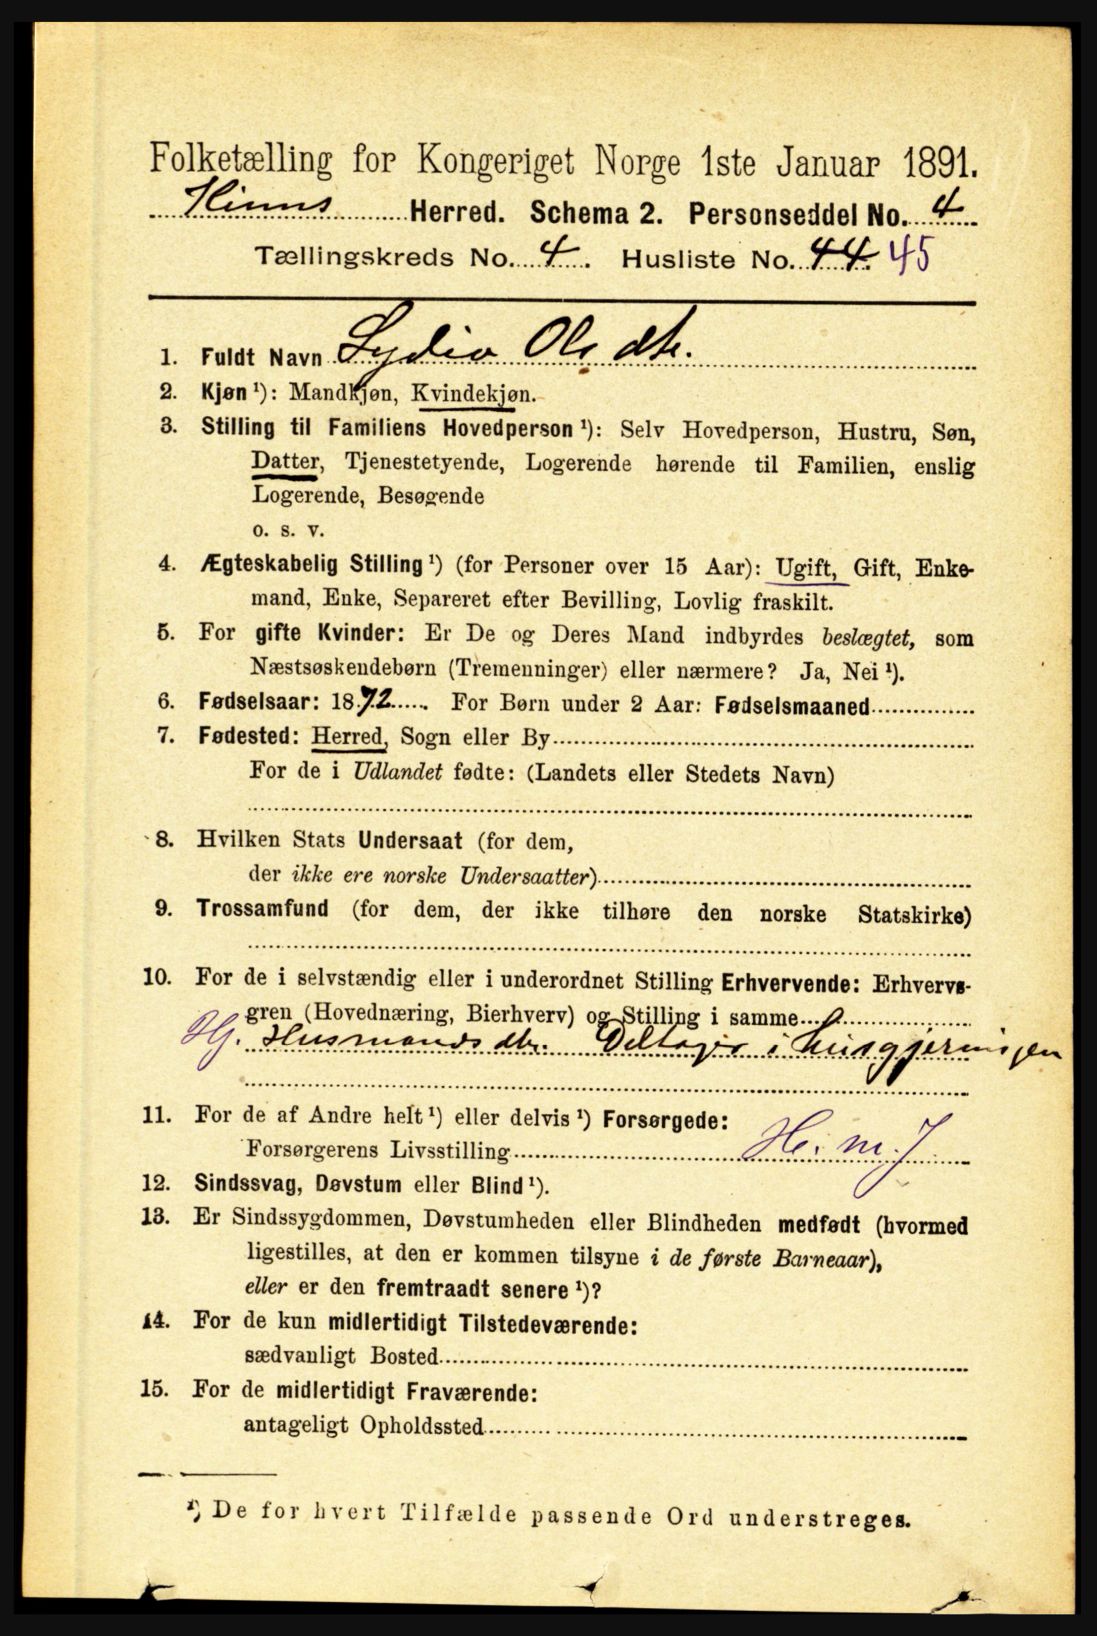 Folketælling for Kongeriget Norge 1ste Januar 1891.
Kinns Herred. Schema 2. Personseddel No. 4
Tællingskreds No. 4. Husliste No. 44. 45
1. Fuldt Navn Lydia Olsdtr.
2. Kjøn ¹): Mandkjøn, Kvindekjøn.
3. Stilling til Familiens Hovedperson ¹): Selv Hovedperson, Hustru, Søn,
Datter, Tjenestetyende, Logerende hørende til Familien, enslig
Logerende, Besøgende
o. s. v.
4. Ægteskabelig Stilling ¹) (for Personer over 15 Aar): Ugift, Gift, Enke-
mand, Enke, Separeret efter Bevilling, Lovlig fraskilt.
5. For gifte Kvinder: Er De og Deres Mand indbyrdes beslægtet, som
Næstsøskendebørn (Tremenninger) eller nærmere? Ja, Nei ¹).
6. Fødselsaar: 1872. For Børn under 2 Aar: Fødselsmaaned
7. Fødested: Herred, Sogn eller By
For de i Udlandet fødte: (Landets eller Stedets Navn)
8. Hvilken Stats Undersaat (for dem,
der ikke ere norske Undersaatter)
9. Trossamfund (for dem, der ikke tilhøre den norske Statskirke)
10. For de i selvstændig eller i underordnet Stilling Erhvervende: Erhvervs-
gren (Hovednæring, Bierhverv) og Stilling i samme
Hj. Husmands dtr. Deltager i husgjerningen
11. For de af Andre helt ¹) eller delvis ¹) Forsørgede:
Forsørgerens Livsstilling H. m. J
12. Sindssvag, Døvstum eller Blind ¹).
13. Er Sindssygdommen, Døvstumheden eller Blindheden medfødt (hvormed
ligestilles, at den er kommen tilsyne i de første Barneaar),
eller er den fremtraadt senere ¹)?
14. For de kun midlertidigt Tilstedeværende:
sædvanligt Bosted
15. For de midlertidigt Fraværende:
antageligt Opholdssted
¹) De for hvert Tilfælde passende Ord understreges.